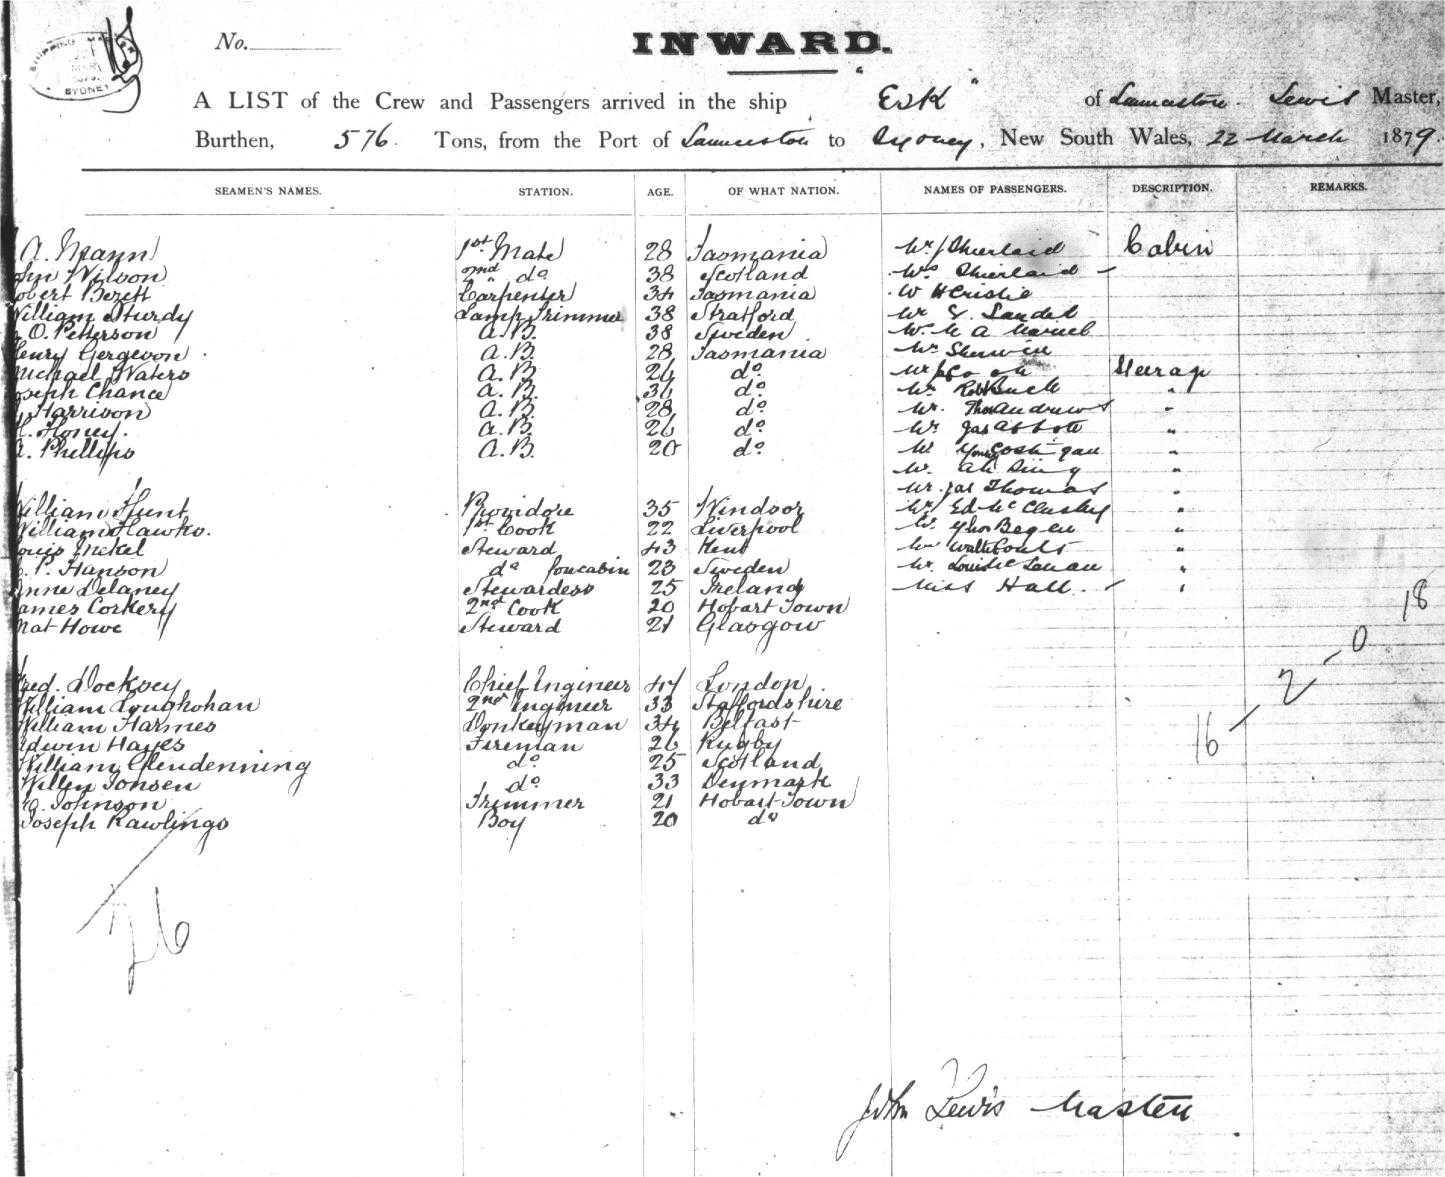 SHIPPING MASTER
SYDNEY
No.
INWARD.
A LIST of the Crew and Passengers arrived in the ship "Esk" of Launceston. Lewis Master,
Burthen, 576. Tons, from the Port of Launceston to Sydney, New South Wales, 22 March 1879.
SEAMEN'S NAMES. STATION. AGE. OF WHAT NATION. NAMES OF PASSENGERS. DESCRIPTION. REMARKS.
A. Mann 1st Mate 28 Tasmania Mr J Shierlaid Cabin
John Wilson 2nd do 38 Scotland Mrs Shierlaid
Robert Bezett Carpenter 34 Tasmania
William Sturdy Lamp Trimmer 38 Stratford
O. Petterson A.B. 38 Sweden
Henry Gergevon A.B. 28 Tasmania Mr Sherwin
Michael Waters A.B. 26 do Steerage
Joseph Chance A.B. 36 do Mr
Harrison A.B. 28 do Mr. Thos Andrews "
H. Honey. A.B. 26 do Mr Jas Abbott "
A. Phillips A.B. 20 do Mr "
Mr. Ah Sing "
Mr. Jas Thomas "
William Hunt Providore 35 Windsor Mr Ed McCluskey "
William Hawks. 1st Cook 22 Liverpool Mr. "
Louis Mekel Steward 43 Kent Mr "
P. Hanson do forecabin 23 Sweden Mr. "
Anne Delaney Stewardess 25 Ireland Miss Hall. "
James Corkery 2nd Cook 20 Hobart Town
Nat Howe Steward 21 Glasgow
18
16 - 2 - 0
Fred. Docksey Chief Engineer 47 London
William Loughohan 2nd Engineer 33 Staffordshire
William Harmes Donkeyman 34 Belfast
Edwin Hayes Fireman 26 Rugby
William Glendenning do 25 Scotland
Willey Jonsen do 33 Denmark
Johnson Trimmer 21 Hobart Town
Joseph Rawlings Boy 20 do
26
John Lewis Master